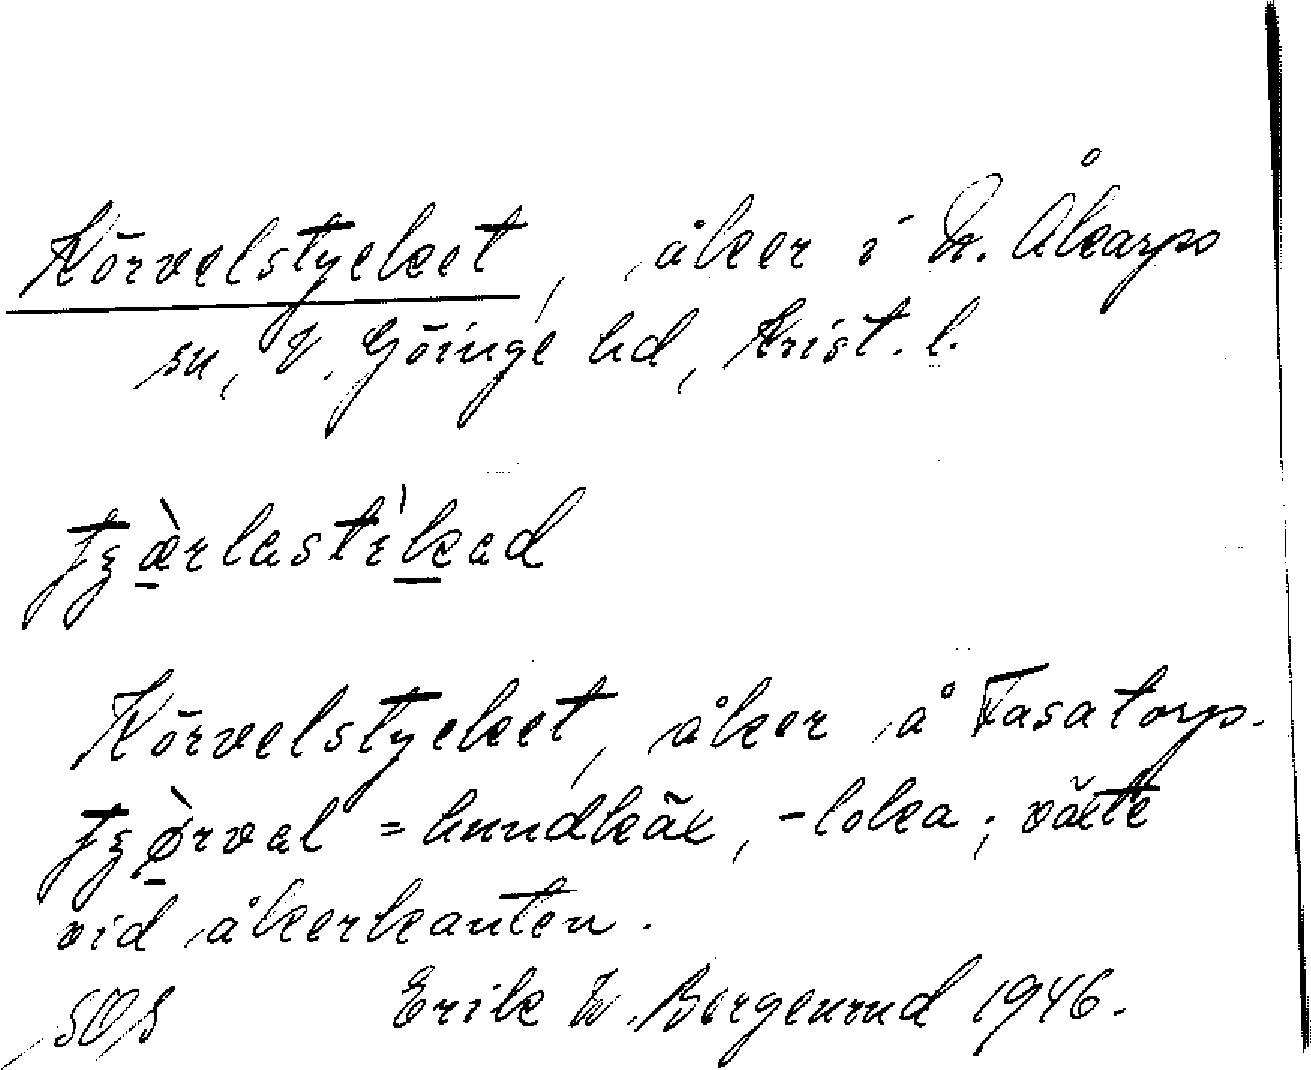 Körvelstycket, åker i N. Åkarps
sn, V. Göinge hd, Krist. l.
Körvelstycket, åker å Fasatorp.
= hundkäx, -loka; växte
vid åkerkanten.
SOS Erik W. Bergenrud 1946.